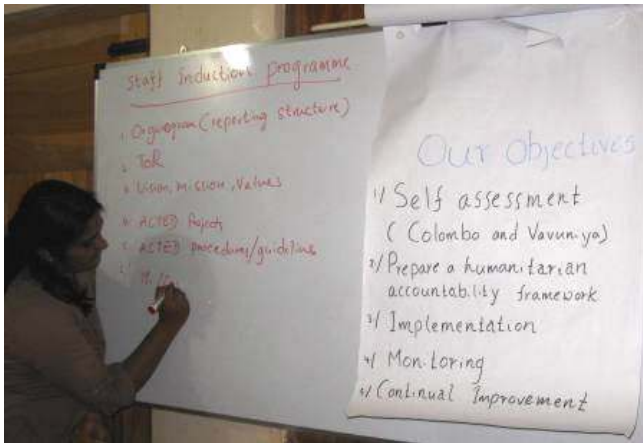 Staff Induction programme
1. Organogram (reporting structure)
2. ToR
3. Vision, mission, Values
4. ACTED Projects
5. ACTED procedures/guidelines
6.
Our Objectives
1/ Self assessment
( Colombo and Vavuniya)
2/ Prepare a humanitarian
accountability framework
3/ Implementation
4/ Monitoring
5/ Continual Improvement